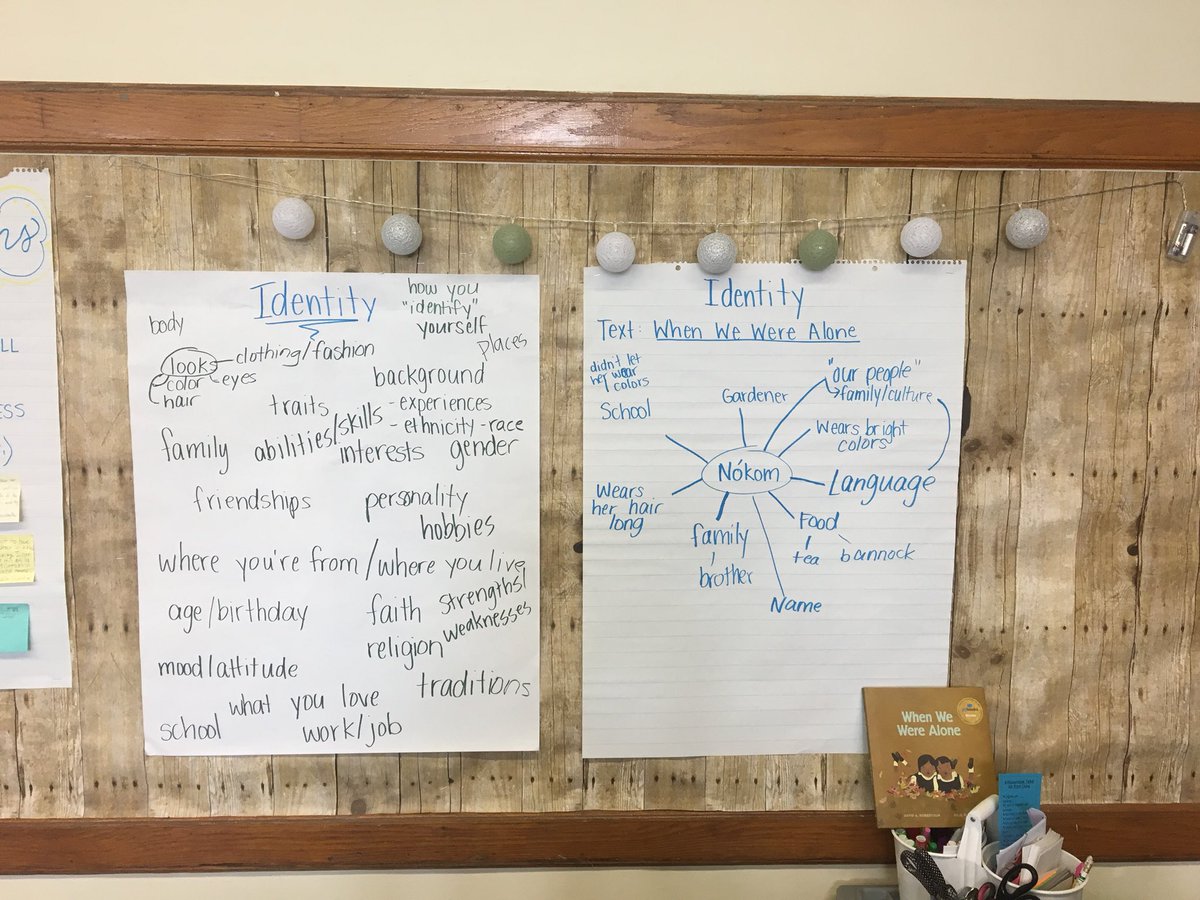 LL
ESS
Identity
how you
"identify"
yourself
body
places
looks - clothing/fashion
color - eyes
hair
background
- experiences
- ethnicity - race
traits
family
abilities/skills
interests
gender
friendships
personality
hobbies
where you're from/where you live
age/birthday
faith
strengths/
weaknesses
religion
mood/attitude
traditions
what you love
school
work/job
Identity
Text: When We Were Alone
didn't let
her wear
colors
School
Gardener
"our people"
family/culture
Wears bright
colors
Nókom
Language
Wears
her hair
long
family
brother
Food
tea
bannock
Name
When We
Were Alone